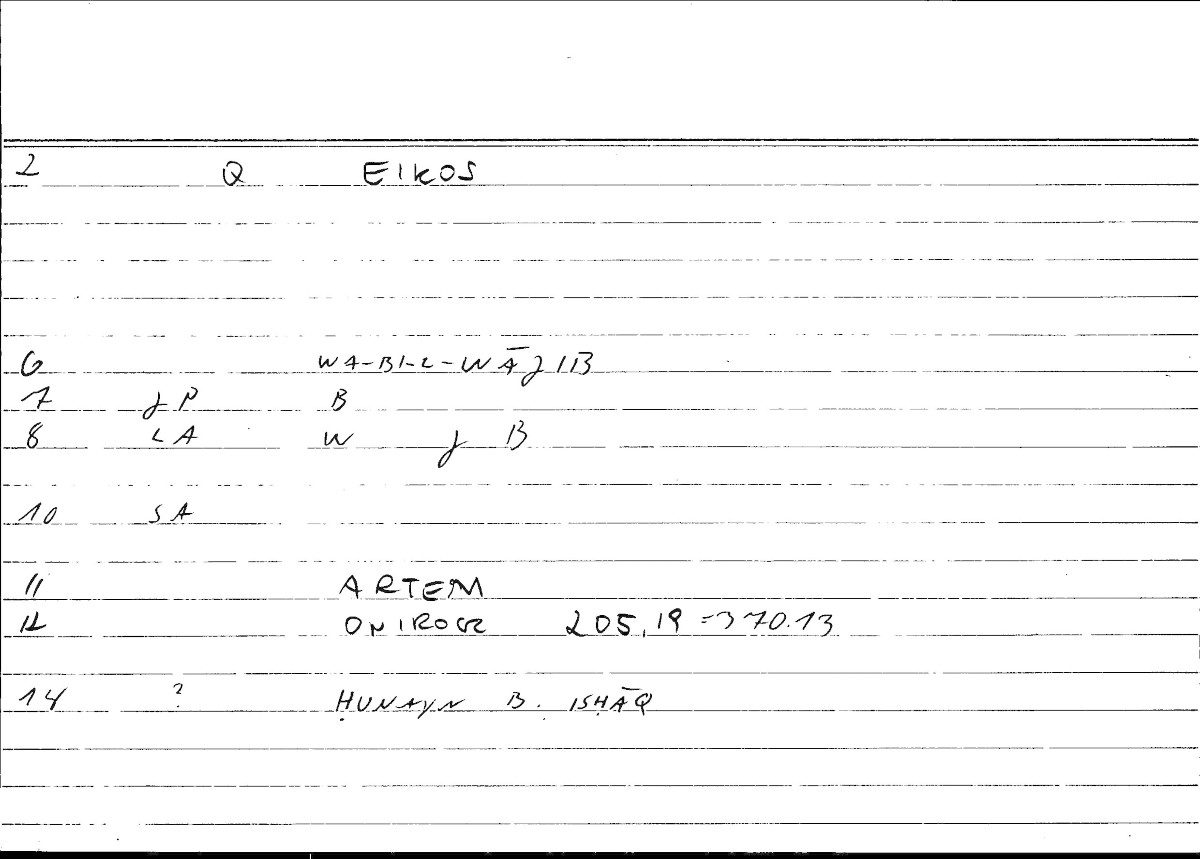 2 Q EIKOS
6 WA-BI-L-WĀJIB
7 JP B
8 LA W J B
10 SA
11 ARTEM
12 ONIROCR 205,19 = 370.13
14 ? ḤUNAYN B. ISḤĀQ